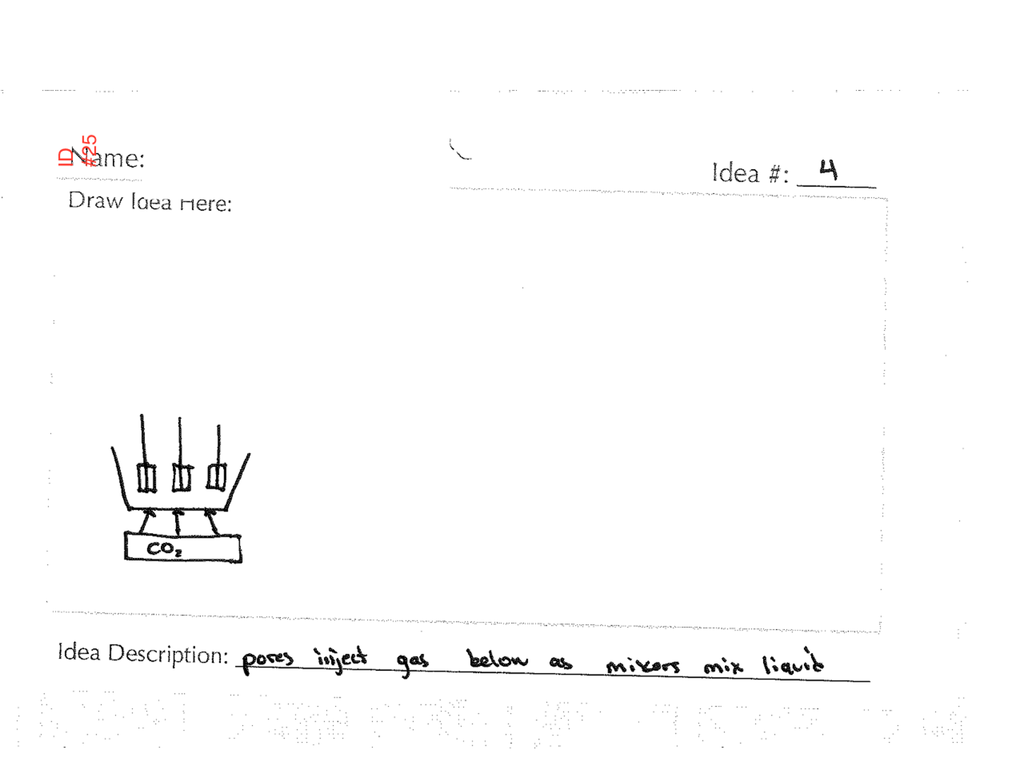 ID #25
Name:
Idea #: 4
Draw Idea Here:
CO₂
Idea Description: pores inject gas below as mixers mix liquid